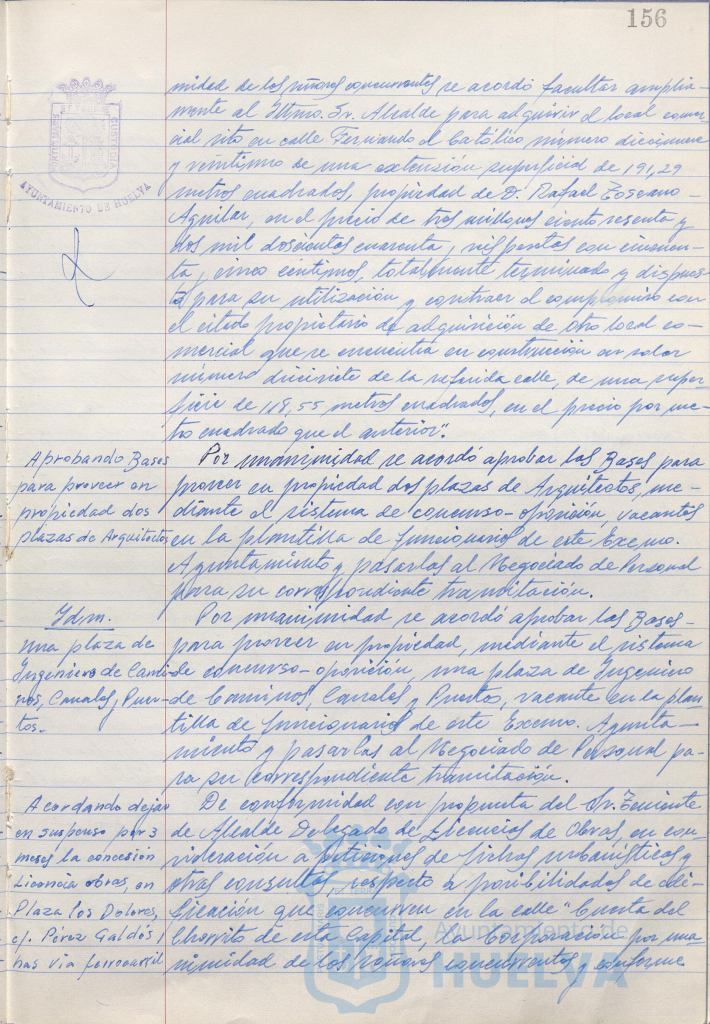 156
AYUNTAMIENTO DE HUELVA
midad de los señores concurrentes se acordó facultar amplia-
mente al Iltmo. Sr. Alcalde para adquirir el local comer-
cial sito en calle Fernando el Católico número diecinueve
y veintiuno de una extensión superficial de 191,29
metros cuadrados, propiedad de D. Rafael Toscano
Aguilar, en el precio de tres millones ciento sesenta y
dos mil doscientos cuarenta y seis pesetas con cincuen-
ta y cinco céntimos, totalmente terminado y dispues-
to para su utilización y contraer el compromiso con
el citado propietario de adquisición de otro local co-
mercial que se encuentra en construcción en solar
número diecisiete de la referida calle, de una super-
ficie de 118,55 metros cuadrados, en el precio por me-
tro cuadrado que el anterior".
Aprobando Bases
para proveer en
propiedad dos
plazas de Arquitectos
Por unanimidad se acordó aprobar las Bases para
proveer en propiedad dos plazas de Arquitectos, me-
diante el sistema de concurso-oposición, vacantes
en la plantilla de funcionarios de este Excmo.
Ayuntamiento y pasarlas al Negociado de Personal
para su correspondiente tramitación.
Idm.
una plaza de
Ingeniero de Cami-
nos, Canales y Puer-
tos.-
Por unanimidad se acordó aprobar las Bases-
para proveer en propiedad, mediante el sistema
de concurso-oposición, una plaza de Ingeniero
de Caminos, Canales y Puertos, vacante en la plan-
tilla de funcionarios de este Excmo. Ayunta-
miento y pasarlas al Negociado de Personal pa-
ra su correspondiente tramitación.
Acordando dejar
en suspenso por 3
meses la concesión
Licencia obras, en
Plaza los Dolores,
c/. Pérez Galdós y
has via ferrocarril
De conformidad con propuesta del Sr. Teniente
de Alcalde Delegado de Licencias de Obras, en con-
sideración a peticiones de fichas urbanísticas y
otras consultas, respecto a posibilidades de edi-
ficación que concurren en la calle "Cuesta del
Chorrito de esta Capital, la Corporación por una-
nimidad de los señores concurrentes y conforme
Ayuntamiento de
HUELVA